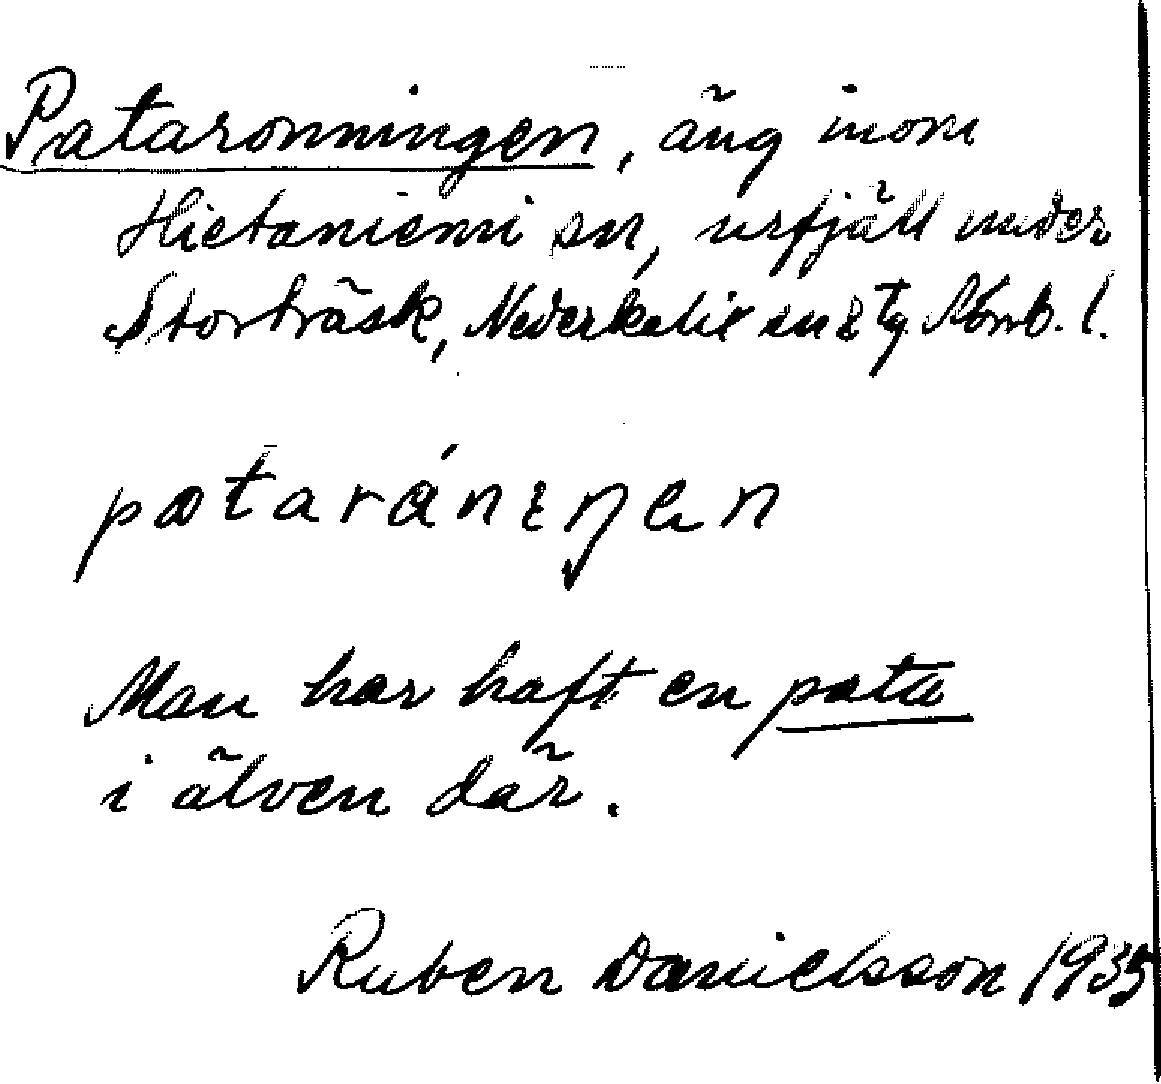 Pataronningen, äng inom
Hietaniemi sn, urfjäll under
Storträsk, Nederkalix sn & tg Norrb. l.
pataránɩŋen
Man har haft en pata
i älven där.
Ruben Danielsson 1935